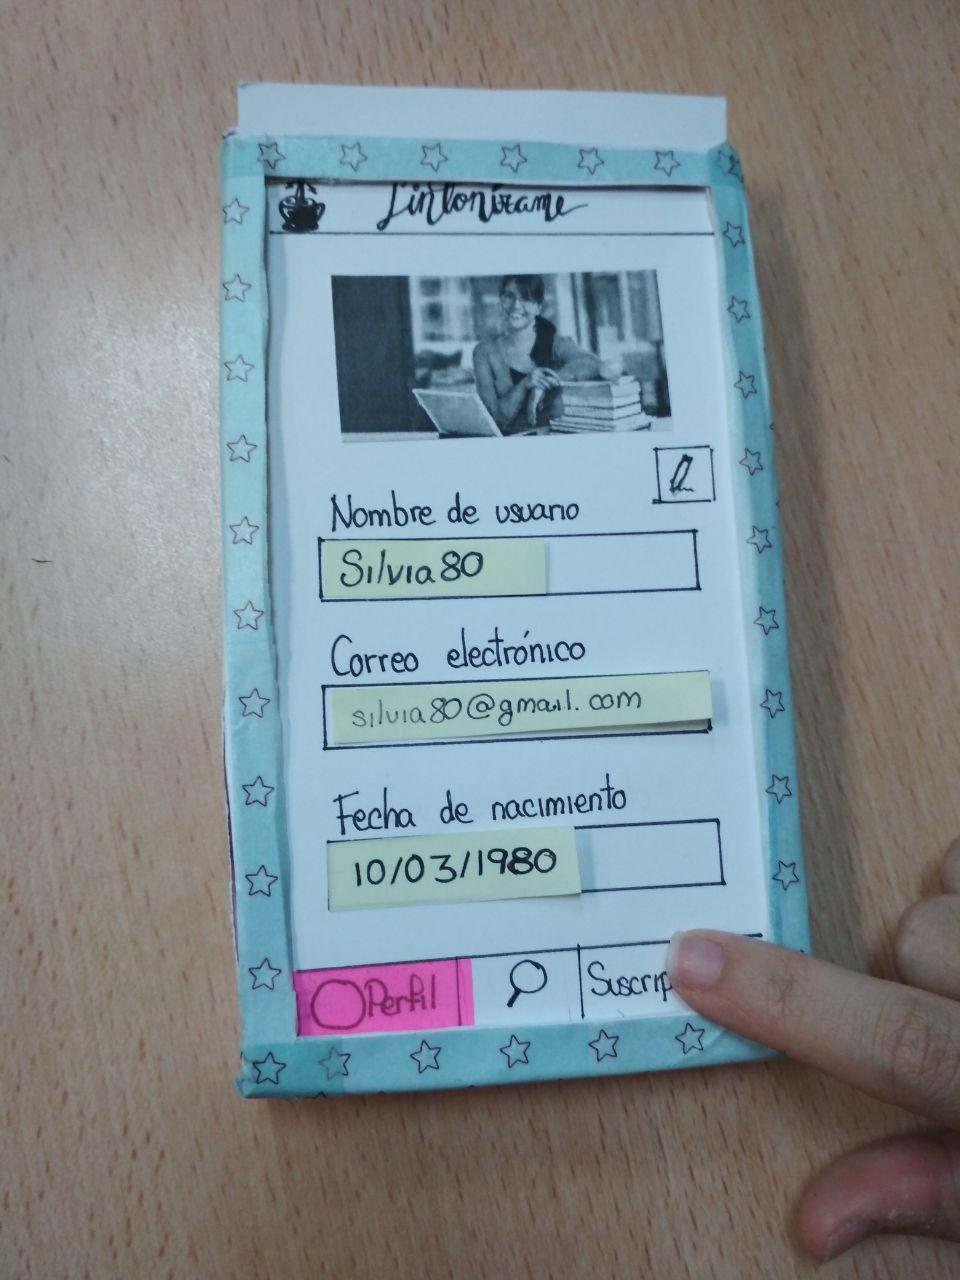 Sintonízame
Nombre de usuario
Silvia80
Correo electrónico
silvia80@gmail.com
Fecha de nacimiento
10/03/1980
Perfil
Suscrip